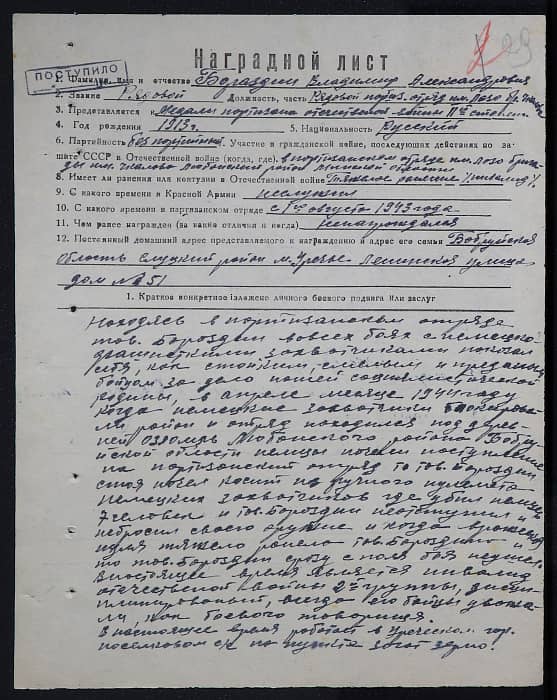 29
Наградной лист
ПОСТУПИЛО
1. Фамилия, имя и отчество Бораздин Владимир Александрович
2. Звание Рядовой Должность, часть Рядовой партиз. отряд им. Лазо бр. Чкалова
3. Представляется к медали партизана отечественной войны IIой степени
4. Год рождения 1913 г. 5. Национальность Русский
6. Партийность без партийный. Участие в гражданской войне, последующих действиях по за-
щите СССР в Отечественной войне (когда, где) в партизанском отряде им. Лазо брига-
ды им. Чкалова район области
8. Имеет ли ранения или контузии в Отечественной войне Тяжелое ранение /инвалид/
9. С какого времени в Красной Армии неслужил
10. С какого времени в партизанском отряде с 1го августа 1943 года
11. Чем ранее награжден (за какие отличия и когда) ненаграждался
12. Постоянный домашний адрес представляемого к награждению и адрес его семьи Бобруйская
область Слуцкий район м. Уречье Ленинская улица
дом № 51
1. Краткое конкретное изложение личного боевого подвига или заслуг
Находясь в партизанском отряде
тов. Бораздин вовсех боях с немецко-
фашистскими захватчиками показал
себя, как стойким, смелым и преданным
бойцом за дело нашей социалистической
родины, в апреле месяце 1944 году
когда немецкие захватчики блокирова-
ли район и отряд находился под дерев-
ней Любанского района Бобру-
йской области немцы начали наступление
на партизанский отряд то тов. Бораздин
стоя начал косить из ручного пулемета
немецких захватчиков где убил немцев
7 человек и тов. Бораздин неотступил и
небросил своего оружие и когда вражеская
пуля тяжело ранела тов. Бораздина и
то тов. Бораздин сразу с поля боя неушел.
Внастоящее время является инвалид
отечественной войны 2ой группы, дисци-
плинированый, всегда его бойцы уважа-
ли, как боевого товарища.
В настоящее время работает в Уреческом гор.
поселковом с/с на пункта загот зерно.